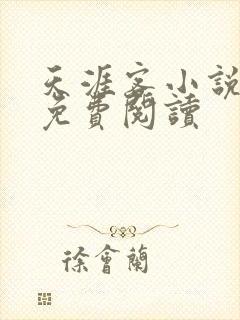 天涯客小說
免費閱讀
徐會蘭